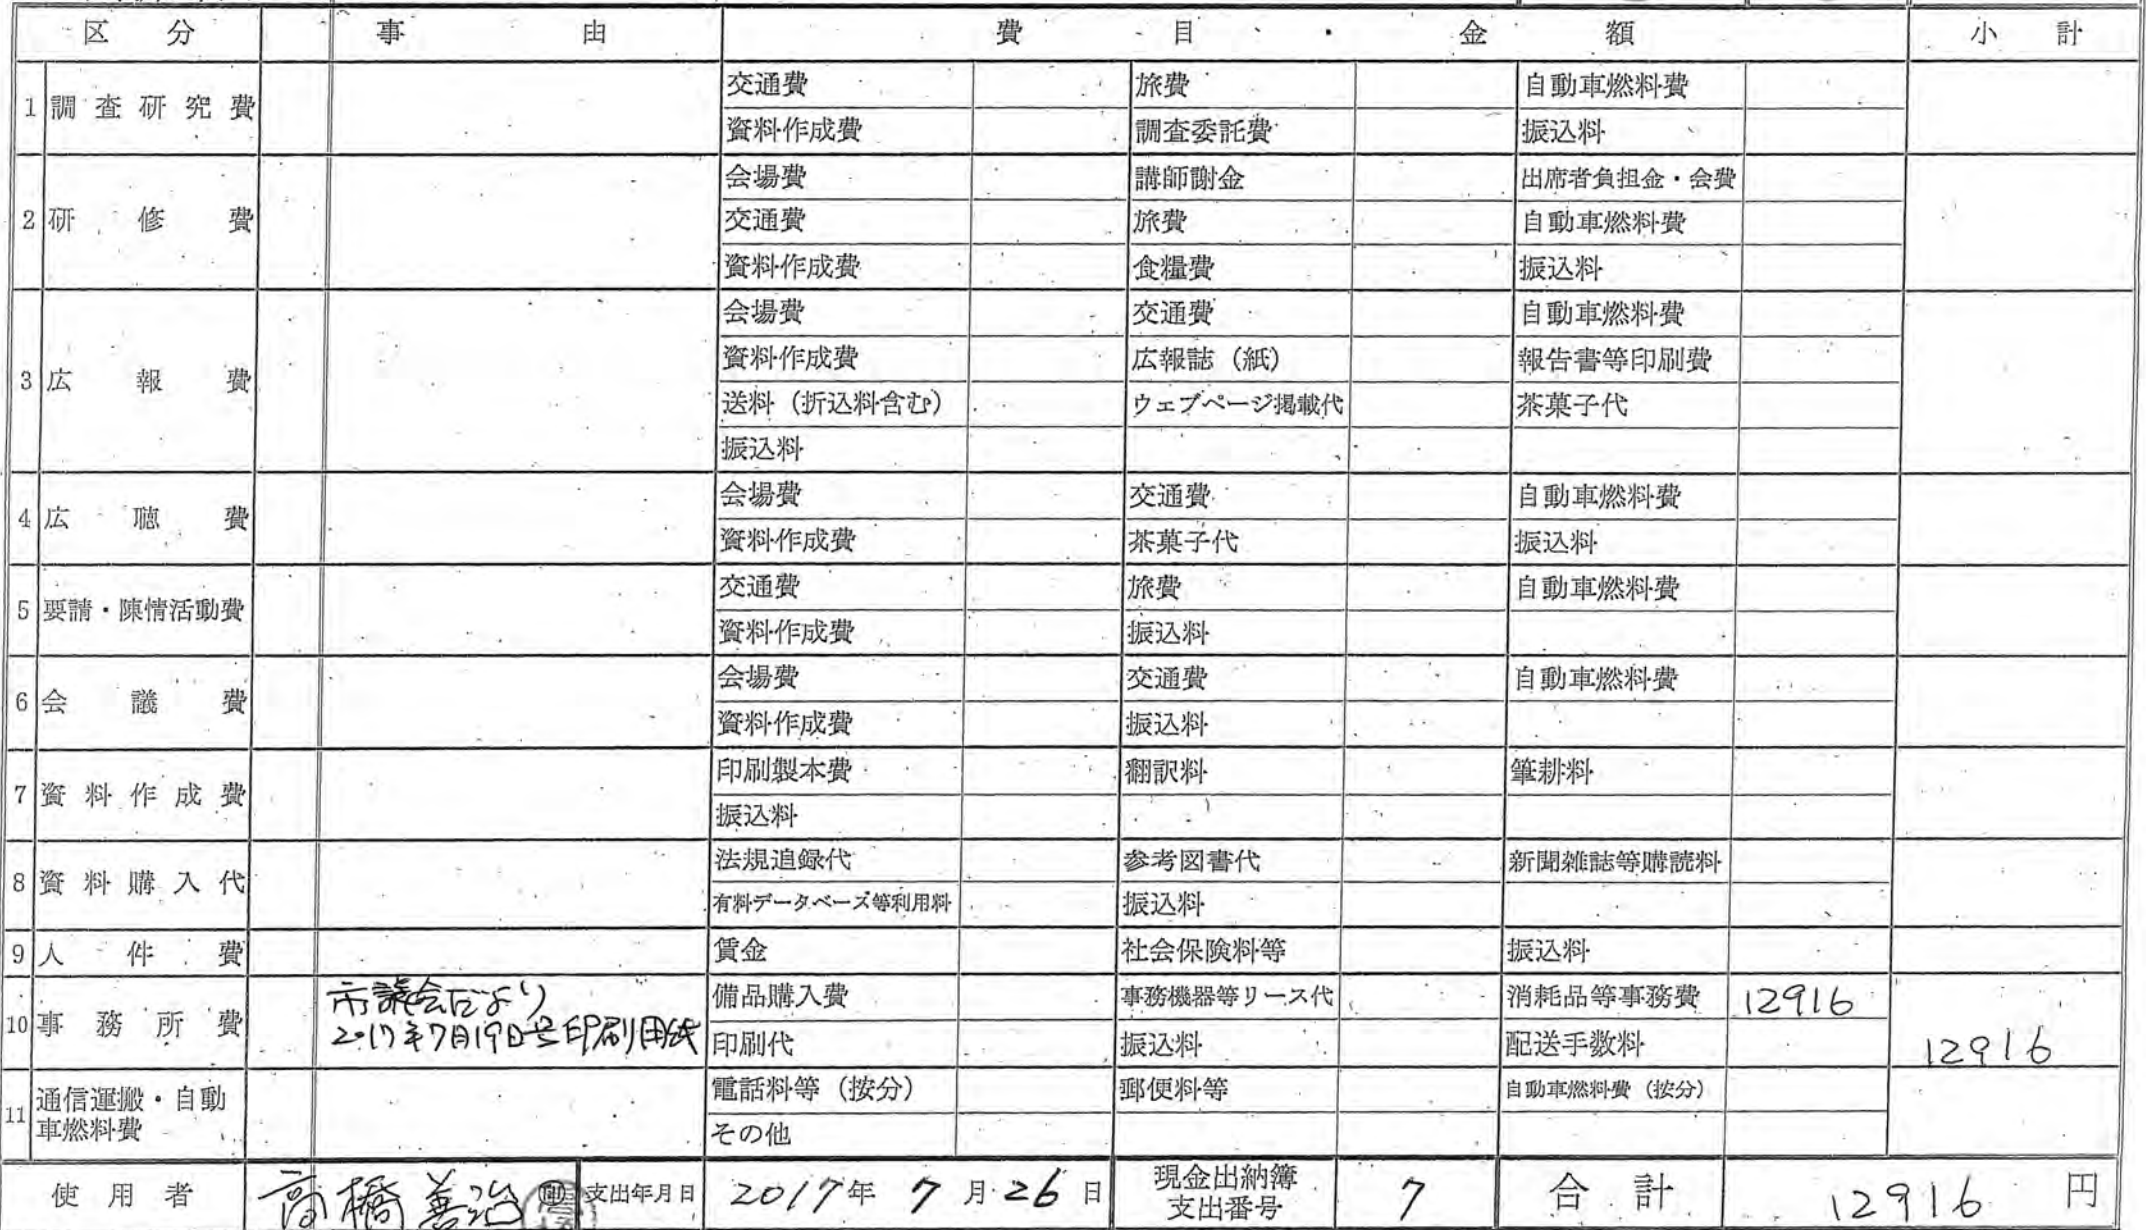 区分 事由 費目・金額 小計
1 調査研究費 交通費 旅費 自動車燃料費
資料作成費 調査委託費 振込料
2 研修費 会場費 講師謝金 出席者負担金・会費
交通費 旅費 自動車燃料費
資料作成費 食糧費 振込料
3 広報費 会場費 交通費 自動車燃料費
資料作成費 広報誌(紙) 報告書等印刷費
送料(折込料含む) ウェブページ掲載代 茶菓子代
振込料
4 広聴費 会場費 交通費 自動車燃料費
資料作成費 茶菓子代 振込料
5 要請・陳情活動費 交通費 旅費 自動車燃料費
資料作成費 振込料
6 会議費 会場費 交通費 自動車燃料費
資料作成費 振込料
7 資料作成費 印刷製本費 翻訳料 筆耕料
振込料
8 資料購入代 法規追録代 参考図書代 新聞雑誌等購読料
有料データベース等利用料 振込料
9 人件費 賃金 社会保険料等 振込料
10 事務所費 市議会だより 備品購入費 事務機器等リース代 消耗品等事務費 12916
2017年7月19日号印刷用紙 印刷代 振込料 配送手数料 12916
11 通信運搬・自動車燃料費 電話料等(按分) 郵便料等 自動車燃料費(按分)
その他
使用者 高橋善治 支出年月日 2017年7月26日 現金出納簿支出番号 7 合計 12916円